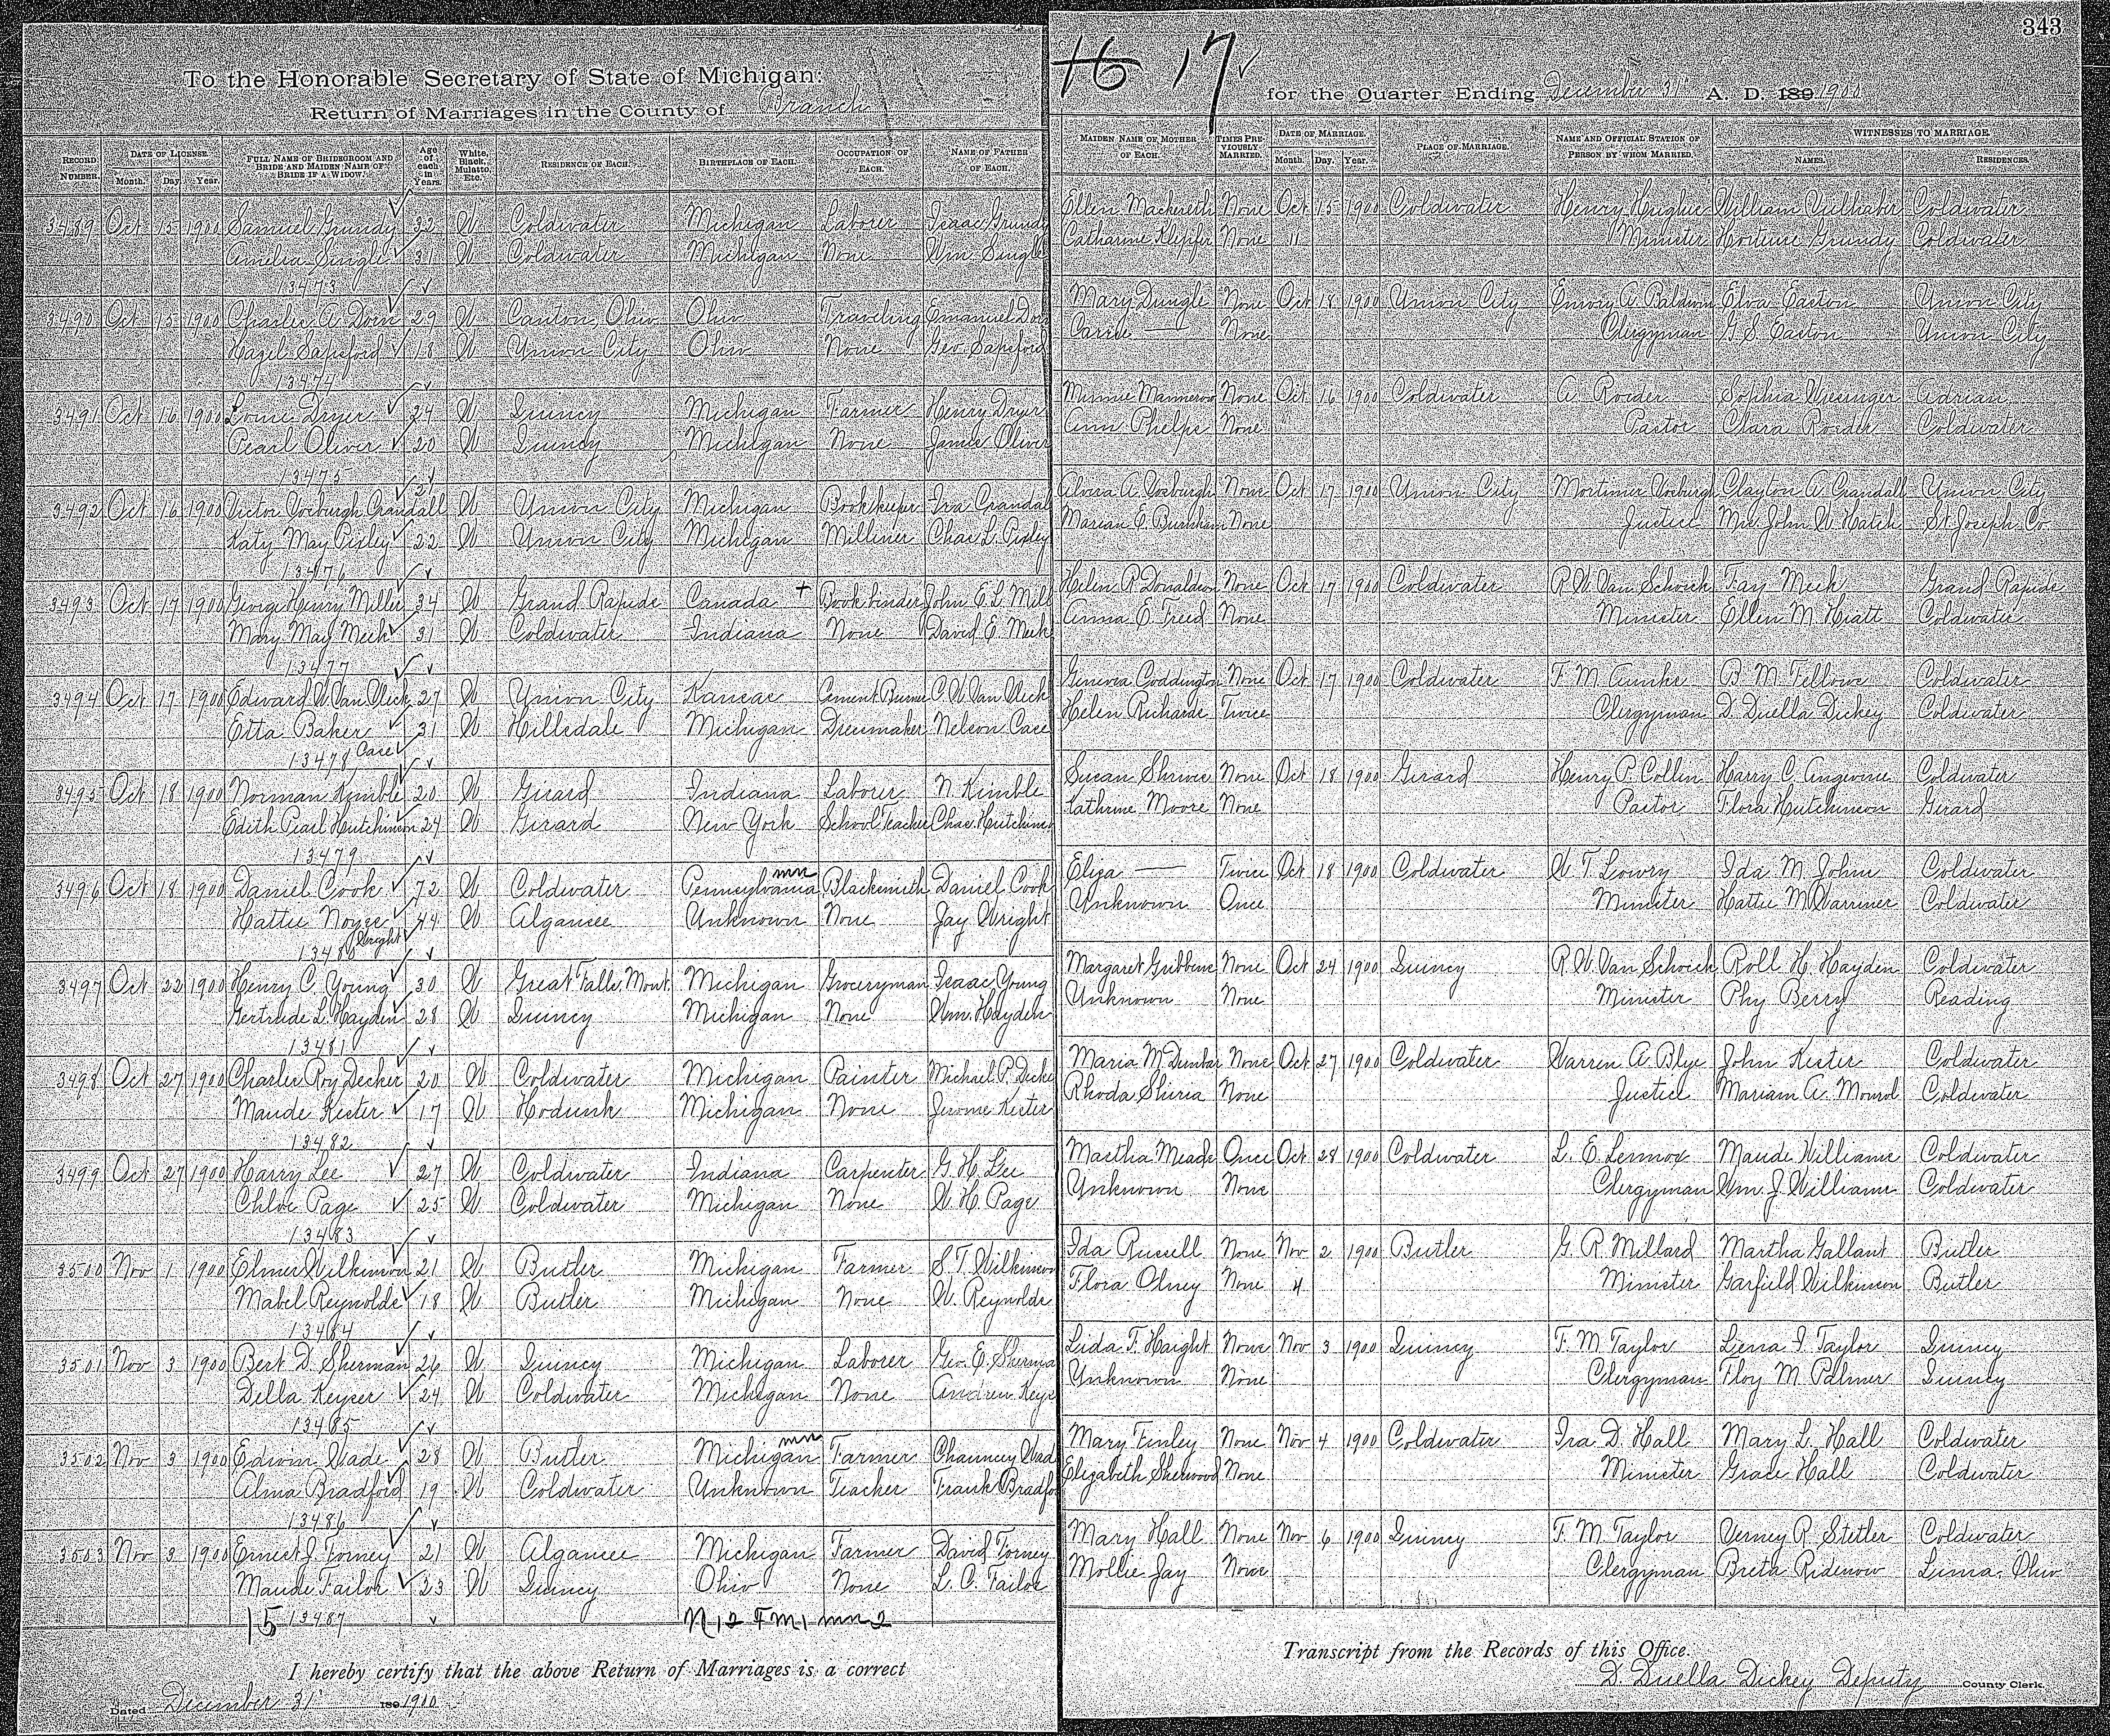 343
16 17
To the Honorable Secretary of State of Michigan:
Return of Marriages in the County of Branch
for the Quarter Ending December 31st A. D. 189 1900
RECORD NUMBER. DATE OF LICENSE. Month. Day. Year. FULL NAME OF BRIDEGROOM AND BRIDE AND MAIDEN NAME OF BRIDE IF A WIDOW. Age of each in Years. White, Black, Mulatto, Etc. RESIDENCE OF EACH. BIRTHPLACE OF EACH. OCCUPATION OF EACH. NAME OF FATHER OF EACH. MAIDEN NAME OF MOTHER OF EACH. TIMES PREVIOUSLY MARRIED. DATE OF MARRIAGE. Month. Day. Year. PLACE OF MARRIAGE. NAME AND OFFICIAL STATION OF PERSON BY WHOM MARRIED. WITNESSES TO MARRIAGE. NAMES. RESIDENCES.
3489 Oct 15 1900 Samuel Grundy 32 W Coldwater Michigan Laborer Isaac Grundy Ellen Mackereth None Oct 15 1900 Coldwater Henry Hughes William Coldwater
Amelia Single 31 W Coldwater Michigan None Wm Single Catharine Klepfer None 11 Minister Hortense Grundy Coldwater
13473
3490 Oct 15 1900 Charles A. Dorn 29 W Canton, Ohio Ohio Traveling Emanuel Dorn Mary Dungle None Oct 18 1900 Union City Emory A. Baldwin Elva Easton Union City
Hazel Sapsford 18 W Union City Ohio None Geo. Sapsford Carrie — None Clergyman G. S. Easton Union City
13474
3491 Oct 16 1900 Louie Dryer 24 W Quincy Michigan Farmer Henry Dryer Minnie Mannerow None Oct 16 1900 Coldwater A. Roeder Sophia Wiesinger Adrian
Pearl Oliver 20 W Quincy Michigan None James Oliver Ann Phelps None Pastor Clara Roeder Coldwater
13475
3492 Oct 16 1900 Victor Vosburgh Crandall 21 W Union City Michigan Bookkeeper Ira Crandall Alvira A. Vosburgh None Oct 17 1900 Union City Mortimer Vosburgh Clayton A. Crandall Union City
Katy May Pixley 22 W Union City Michigan Milliner Chas L. Pixley Marian E. Burnham None Justice Mrs John W Hatch St Joseph Co.
13476
3493 Oct 17 1900 George Henry Miller 34 W Grand Rapids Canada + Bookbinder John E. L. Mill Helen R Donaldson None Oct 17 1900 Coldwater R. W. Van Schoick Fay Meek Grand Rapids
Mary May Meek 31 W Coldwater Indiana None David E. Meek Anna E. Treed None Minister Ellen M. Hiatt Coldwater
13477
3494 Oct 17 1900 Edward W Van Vleck 27 W Union City Kansas Cement Burner C. W Van Vleck Genevia Coddington None Oct 17 1900 Coldwater F. M. B. M. Fellows Coldwater
Etta Baker 31 W Hillsdale Michigan Dressmaker Nelson Case Helen Richards Twice Clergyman D. Duella Dickey Coldwater
13478 Case
3495 Oct 18 1900 Norman Kimble 20 W Girard Indiana Laborer N. Kimble Susan Shriver None Oct 18 1900 Girard Henry P. Collin Harry C. Angevine Coldwater
Edith Pearl Hutchinson 24 W Girard New York School Teacher Chas. Hutchins Kathrine Moore None Pastor Flora Hutchinson Girard
13479
3496 Oct 18 1900 Daniel Cook 72 W Coldwater Pennsylvania mn Blacksmith Daniel Cook Eliza — Twice Oct 18 1900 Coldwater W. T. Lowry Ida M. Johns Coldwater
Hattie Noyes 44 W Algansee Unknown None Jay Wright Unknown Once Minister Hattie M Warriner Coldwater
13480 Wright
3497 Oct 22 1900 Henry C. Young 30 W Great Falls, Mont. Michigan Groceryman Isaac Young Margaret Gribbens None Oct 24 1900 Quincy R. W. Van Schoick Roll H. Hayden Coldwater
Gertrude L. Hayden 28 W Quincy Michigan None Wm. Hayden Unknown None Minister Phy Berry Reading
13481
3498 Oct 27 1900 Charles Roy Decker 20 W Coldwater Michigan Painter Michael P. Decke Maria M. Dunbar None Oct 27 1900 Coldwater Warren A. Blye John Kester Coldwater
Maude Kester 17 W Hodunk Michigan None Jerome Kester Rhoda Shirea None Justice Mariam A. Coldwater
13482
3499 Oct 27 1900 Harry Lee 27 W Coldwater Indiana Carpenter G. H. Lee Martha Meade Once Oct 28 1900 Coldwater L. E. Lennox Maude Williams Coldwater
Chloe Page 25 W Coldwater Michigan None W. H. Page Unknown None Clergyman Wm. J. Williams Coldwater
13483
3500 Nov 1 1900 Elmer Wilkinson 21 W Butler Michigan Farmer S. T. Wilkinson Ida Russell None Nov 2 1900 Butler G. R. Millard Martha Gallant Butler
Mabel Reynolds 18 W Butler Michigan None W. Reynolds Flora Olney None 4 Minister Garfield Wilkinson Butler
13484
3501 Nov 3 1900 Bert D. Sherman 26 W Quincy Michigan Laborer Geo. E. Sherma Lida F. Haight None Nov 3 1900 Quincy F. M. Taylor Lena I. Taylor Quincy
Della Keyser 24 W Coldwater Michigan None Andrew Keys Unknown None Clergyman Floy M. Palmer Quincy
13485
3502 Nov 3 1900 Edwin Wade 28 W Butler Michigan mn Farmer Chauncey Wad Mary Finley None Nov 4 1900 Coldwater Ira D. Hall Mary L. Hall Coldwater
Alma Bradford 19 W Coldwater Unknown Teacher Frank Bradfo Elizabeth Sherwood None Minister Grace Hall Coldwater
13486
3503 Nov 3 1900 Ernest J. Torney 21 W Algansee Michigan Farmer David Torney Mary Hall None Nov 6 1900 Quincy F. M. Taylor Verney R. Stetler Coldwater
Maude Tailor 23 W Quincy Ohio None L. C. Tailor Mollie Jay None Clergyman Breta Ridenour Lima, Ohio
15 13487 N 12 FM 1 mn 2
I hereby certify that the above Return of Marriages is a correct Transcript from the Records of this Office.
Dated December 31st 189 1900
D. Duella Dickey Deputy County Clerk.